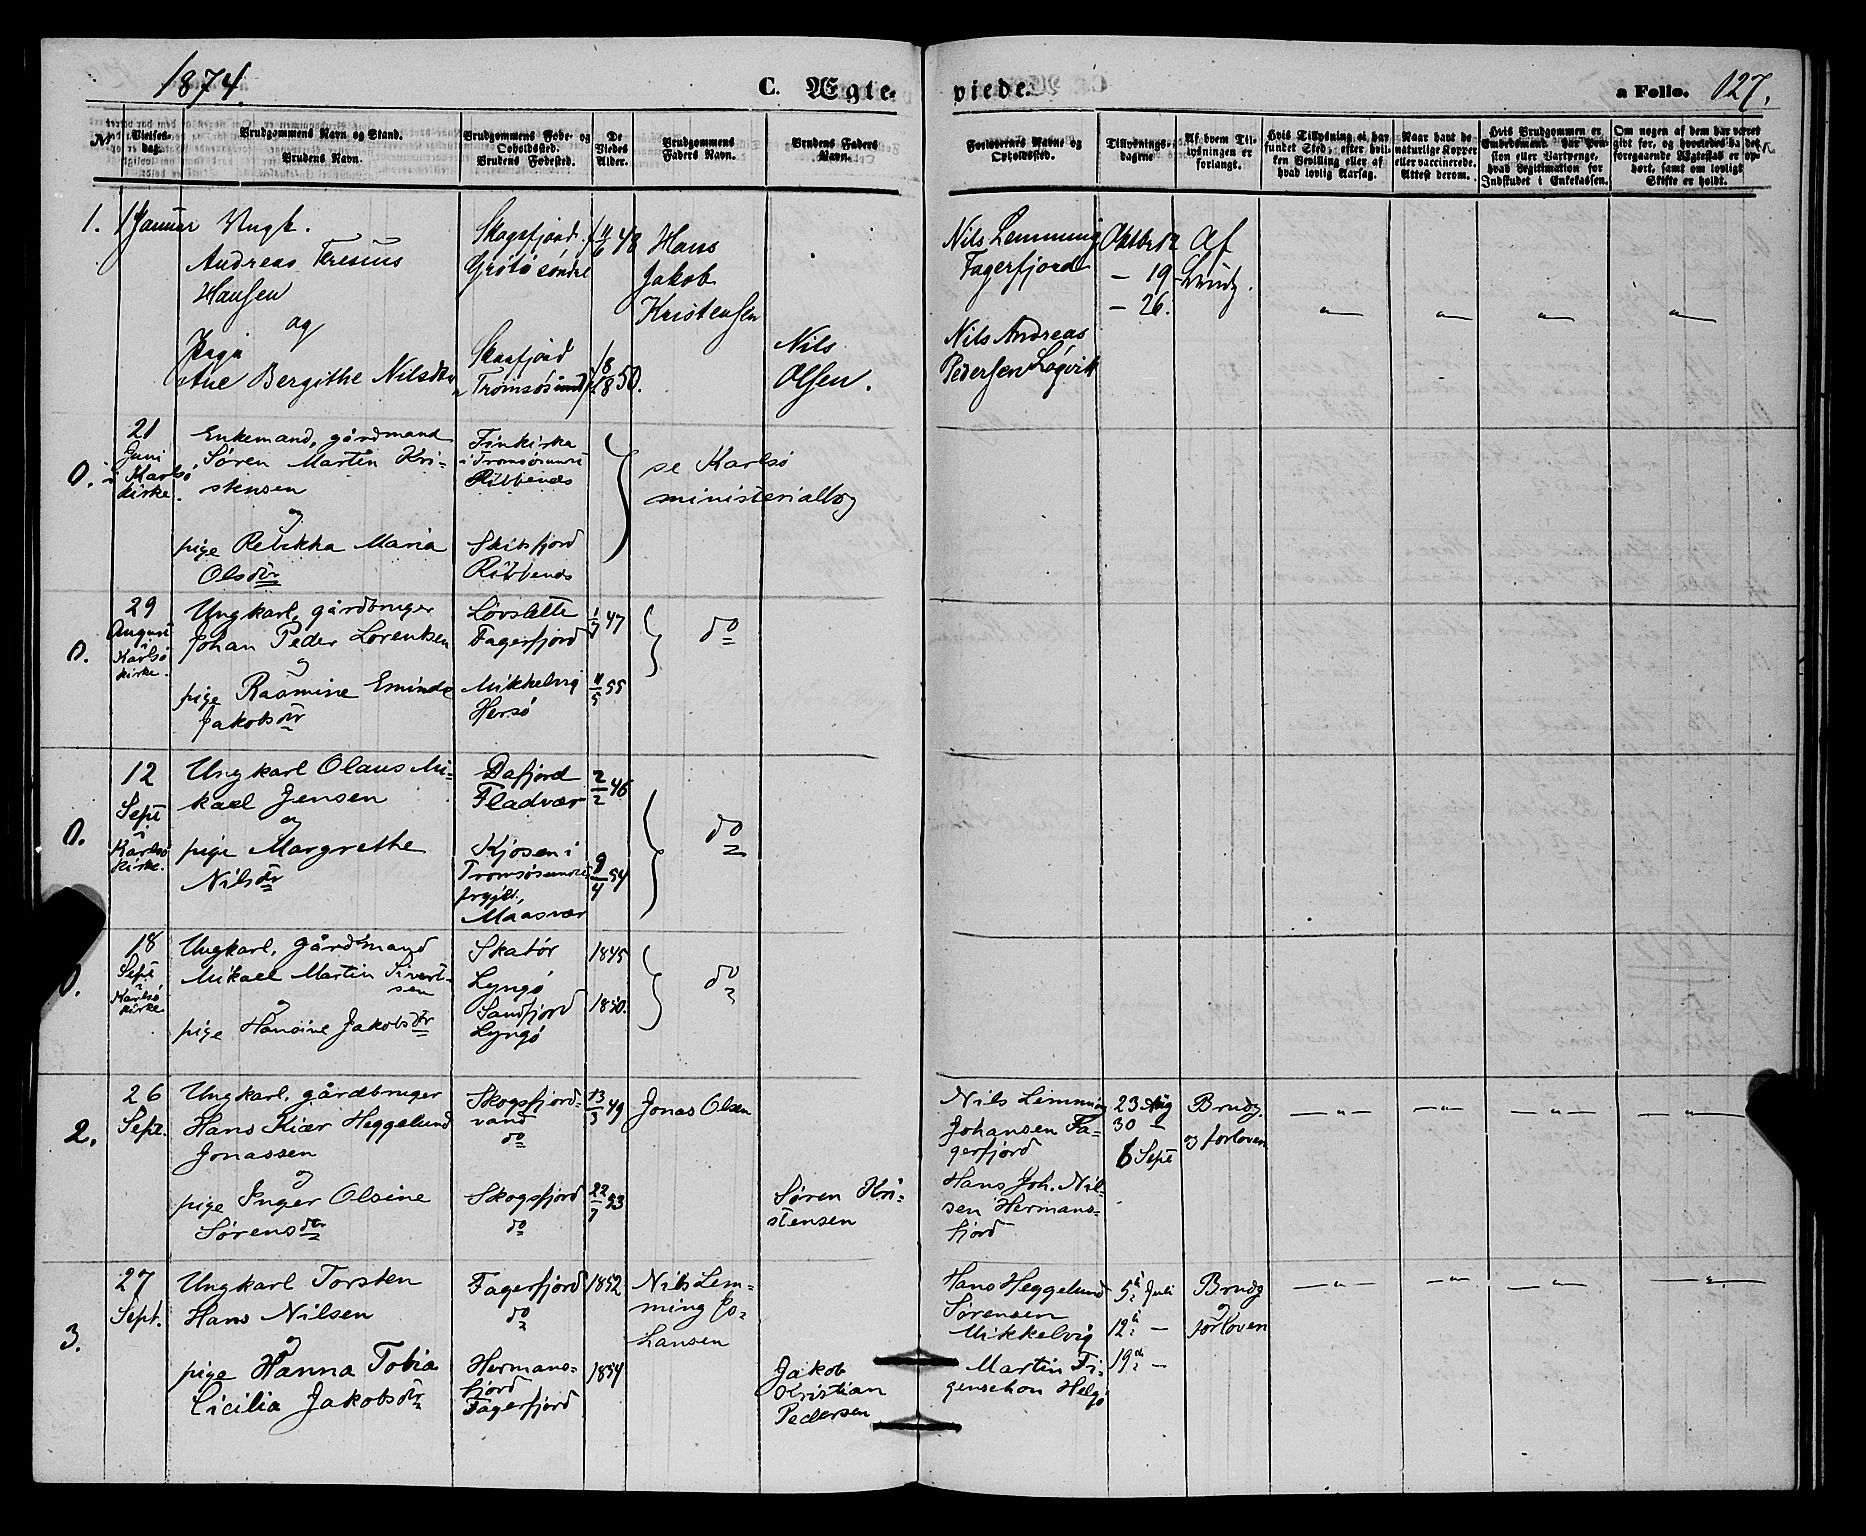 1874.
C. Ægte-
viede.
a Folio. 127.
No
Vielses-
dag.
Brudgommens Navn og Stand.
Brudens Navn.
Brudgommens Føde- og
Opholdssted.
Brudens Fødested.
De
Viedes
Alder.
Brudgommens
Faders Navn.
Brudens Faders
Navn.
Forlovernes Navne og
Opholdssted.
Tillysnings-
dagene
Af hvem Til-
lysningen er
forlangt.
Hvis Tillysning ei har
fundet Sted, efter hvil-
ken Bevilling eller af
hvad lovlig Aarsag.
Naar havt de
naturlige Kopper
eller vaccinerede.
Attest derom.
Hvis Brudgommen er
Embedsmand, har Pen-
sion eller Vartpenge,
hvad Legitimation for
Indskudet i Enkekassen.
Om nogen af dem har været
gift før, og hvorledes da det
foregaaende Ægteskab er op-
hørt, samt om lovligt
Skifte er holdt.
1.
1 Januar
Ungk.
Andreas Fresius
Hansen
og
Pige
Ane Bergithe Nilsdtr
Skogsfjord
Grötö söndre
Skogfjord
Tromsøsund
11/6 48
18/18 50.
Hans
Jakob
Kristensen
Nils
Olsen.
Nils Lemming
Fagerfjord
Nils Andreas
Pedersen Løgvik
Oktbr 12
— 19
— 26.
Af
Brudg.
0.
21
Juni
i Karlsø
kirke.
Enkemand, gårdmand
Søren Martin Kri-
stensen
og
pige Rebekka Maria
Olsdtr
Finkirka
i Tromsøsund
Ribbenes
Skibsfjord
Ribbenes
se Karlsø
ministerialbog
0.
29
August
i
Karlsø
kirke.
Ungkarl, gårdbruger
Johan Peder Lorentsen
og
pige Rasmine Eminde
Jakobsdtr
Løvslette
Fagerfjord
Mikkelvig
Hersø
1/7 47
11/5 55
do
0.
12
Sept
i
Karlsø
kirke.
Ungkarl Olaus Mi-
kael Jensen
og
pige Margrethe
Nilsdtr
Dafjord
Fladvær
Kjosen i
Tromsøsundet
prgjld.,
Maasvær
2/2 46
9/4 54
do
0.
18
Sept
i
Karlsø
kirke
Ungkarl, gårdmand
Mikael Martin Sivert-
sen
og
pige Hansine Jakobsdtr
Skatør
Lyngø
Sandfjord
Lyngø
1845
1850.
do
2.
26
Sept.
Ungkarl, gårdbruger
Hans Kiær Heggelund
Jonassen
og
pige Inger Olsine
Sørensdtr
Skogsfjord-
vand
do
Skogsfjord
do
13/3 49
22/7 53
Jonas Olsen
Søren Kri-
stensen
Nils Lemming
Johansen Fa-
gerfjord
Hans Joh. Nil-
sen Hermans-
fjord
23 Aug
30 —
6 Sept
Brudg.
og forloven
3.
27
Sept.
Ungkarl Torsten
Hans Nilsen
og
pige Hanna Tobia
Cicilia Jakobsdtr
Fagerfjord
do
Hermans-
fjord
Fagerfjord
1852
1854
Nils Lem-
ming Jo-
hansen
Jakob
Kristian
Pedersen
Hans Heggelund
Sørensen
Mikkelvig
Martin
Helgø
5te Juli
12te —
19de —
Brudg
og
forloven